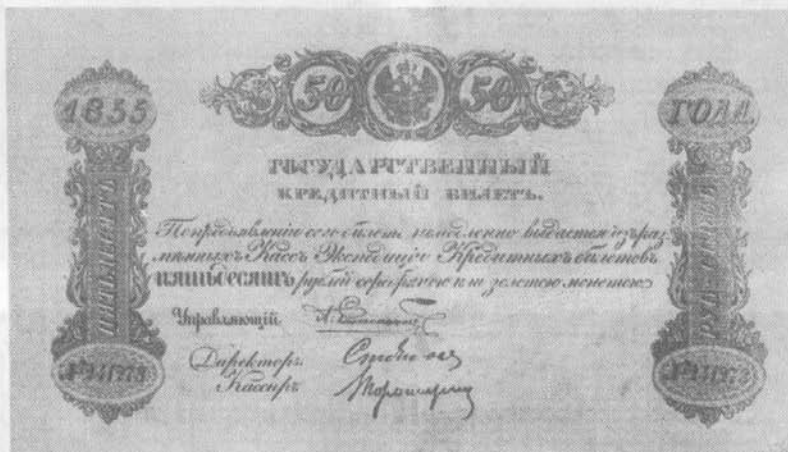 50 50
1855 ГОДА.
ГОСУДАРСТВЕННЫЙ
КРЕДИТНЫЙ БИЛЕТЪ.
По предъявленіи сего билета немедленно выдается изъ раз
мѣнныхъ Кассъ Экспедиціи Кредитныхъ билетовъ
пятьдесятъ рублей серебряною или золотою монетою
ПЯТЬДЕСЯТЪ
Управляющій
Директоръ
Кассиръ